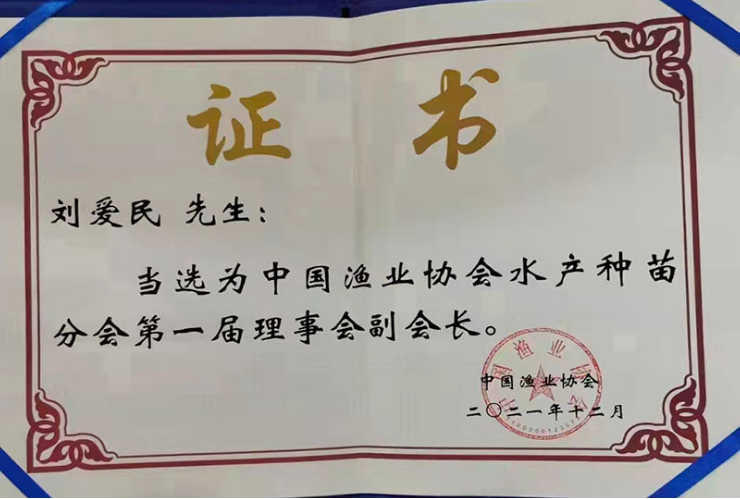 证书
刘爱民 先生：
当选为中国渔业协会水产种苗
分会第一届理事会副会长。
中国渔业协会
中国渔业协会
二〇二一年十二月